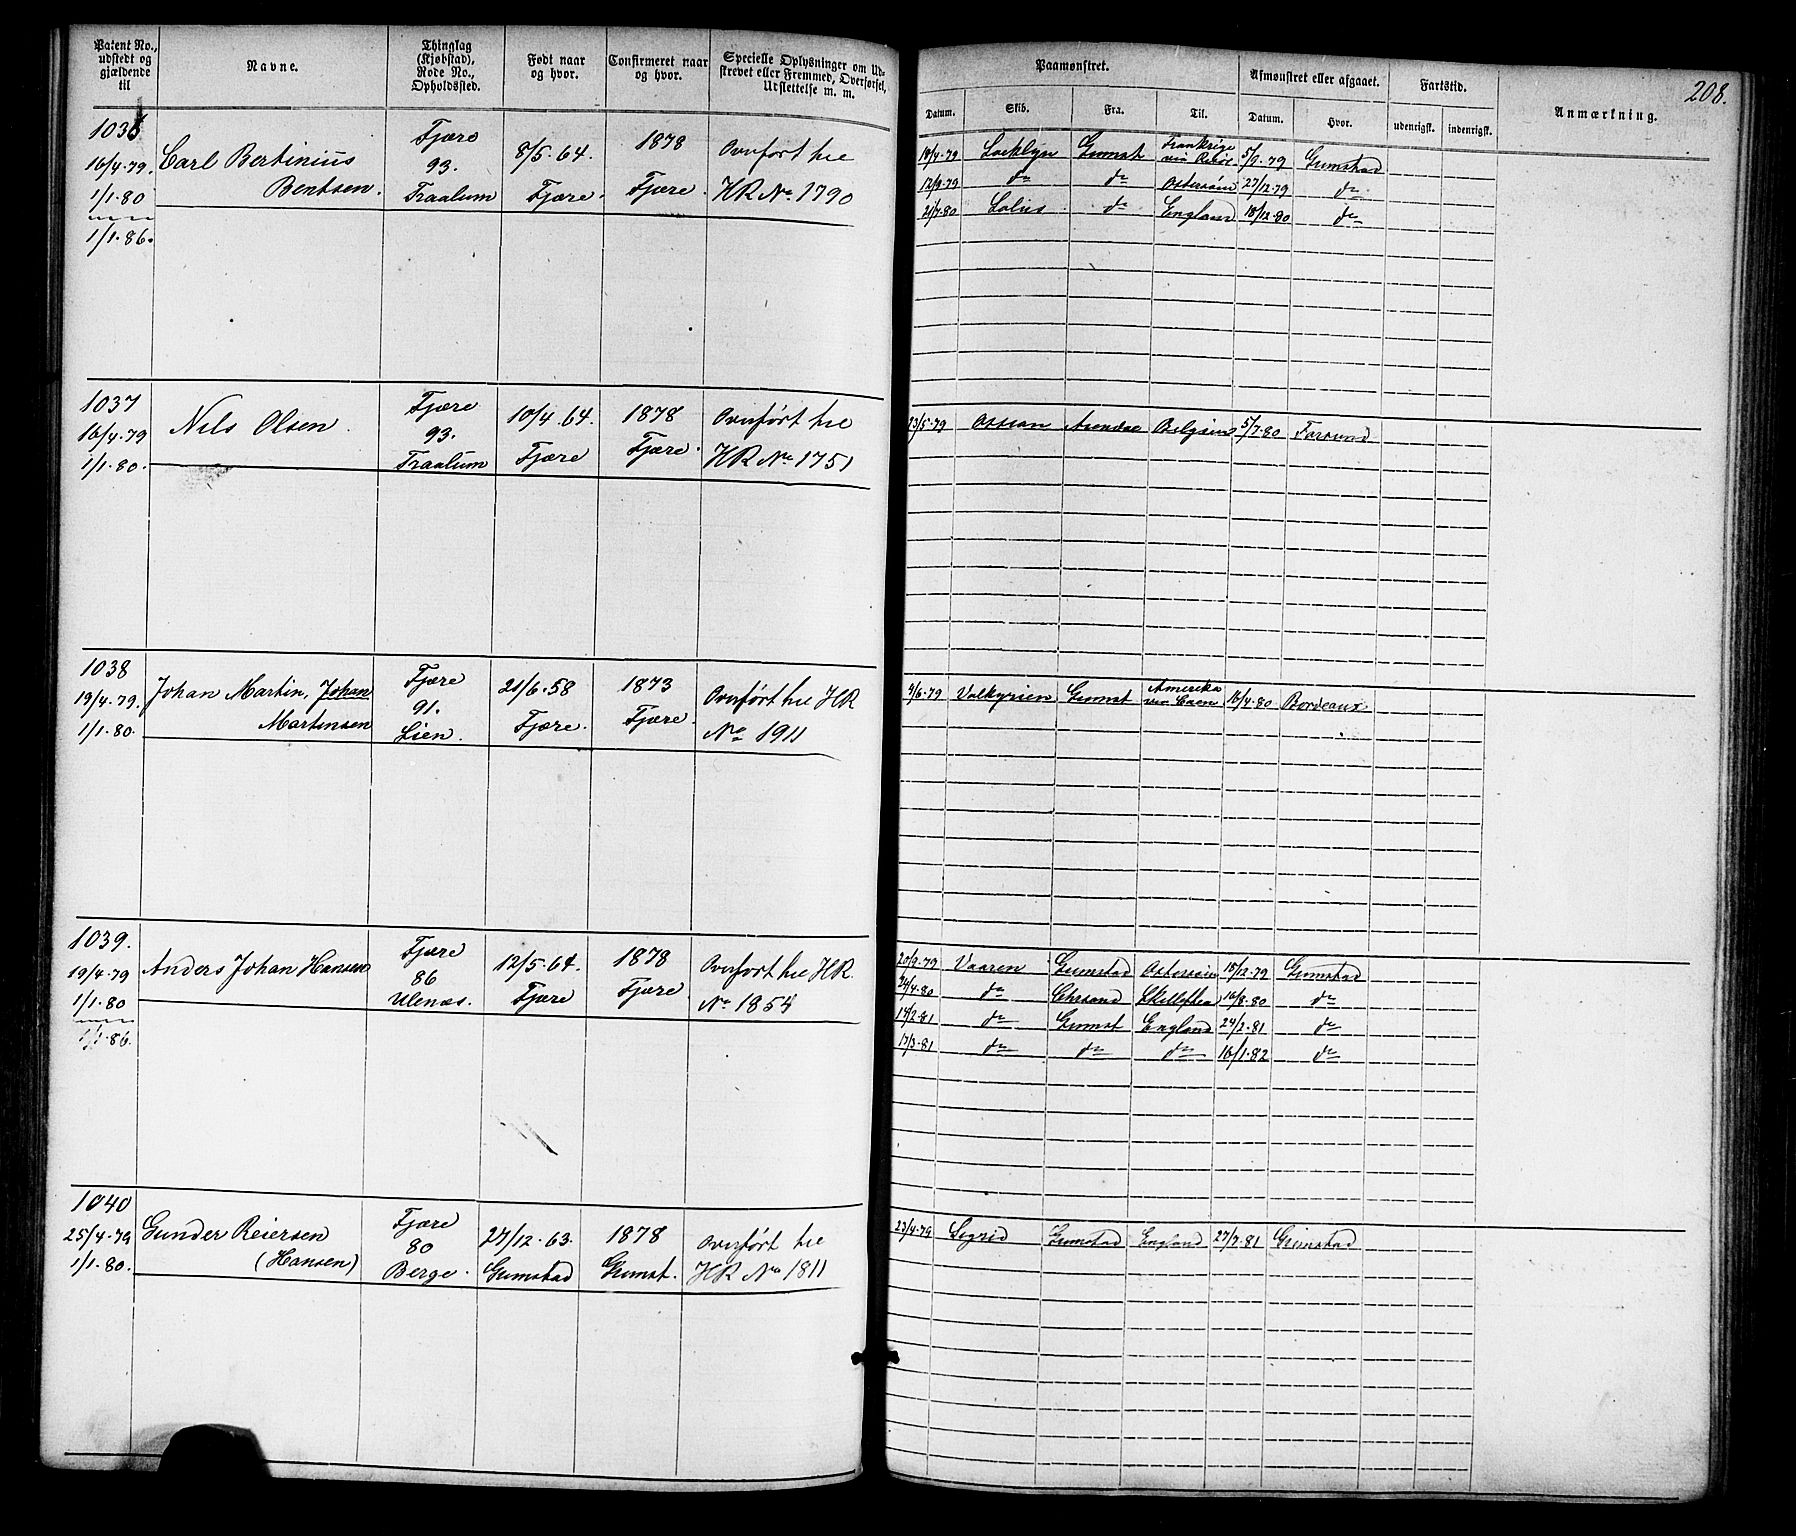 Patent No., udstedt og gjældende til
Navne.
Thinglag (Kjøbstad), Rode No., Opholdssted.
Født naar og hvor.
Confirmeret naar og hvor.
Specielle Oplysninger om Udskrevet eller Fremmed, Overførsel, Udslettelse m. m.
Paamønstret.
Datum.
Skib.
Fra:
Til.
Afmønstret eller afgaaet.
Datum.
Hvor.
Fartstid.
udenrigsk.
indenrigsk.
Anmærkning.
208.
1036
16/4.79.
1/1.80
1/1.86.
Carl Bertinius
Bentsen.
Fjære
93.
Traalum
8/5.64.
Fjære.
1878
Fjære.
Overført til
HR No. 1790
18/4.79 Grimst Frankrige 5/9.79 Grimstad
12/9.79 do do Østersøen 27/12.79 do
21/7.80 do England 18/12.80 do
1037
16/4.79
1/1.80.
Nils Olsen.
Fjære
93.
Traalum
10/4.64.
Fjære
1878
Fjære.
Overført til
HR No 1751
23/5.79 Ossian Arendal Belgien 5/7.80 Farsund
1038
19/4.79.
1/1.80.
Johan Martin, Johan
Martinsen
Fjære
91.
Lien.
21/6.58
Fjære.
1873
Fjære.
Overført til HR
No 1911
9/6.79 Valkyrien Grimst Amerika via Caen 16/4.80 Bordeaux
1039.
19/4.79
1/1.80
1/1.86.
Anders Johan Hansen
Fjære
86
Ulenæs.
12/5.64.
Fjære
1878
Fjære
Overført til HR
No 1854
20/9.79 Vaaren Grimstad Østersøen 18/12.79 Grimstad
24/4.80 do Chrsand Skelleftea 16/8.80 do
14/2.81 do Grimst England 24/2.81 do
17/3.81 do do do 16/1.82 do
1040
25/4.79
1/1.80.
Gunder Reiersen
(Hansen)
Fjære
80
Berge.
27/12.63.
Grimstad
1878
Grimst.
Overført til
HR No 1811
23/4.79 Sigrid Grimstad England 27/7.81 Grimstad